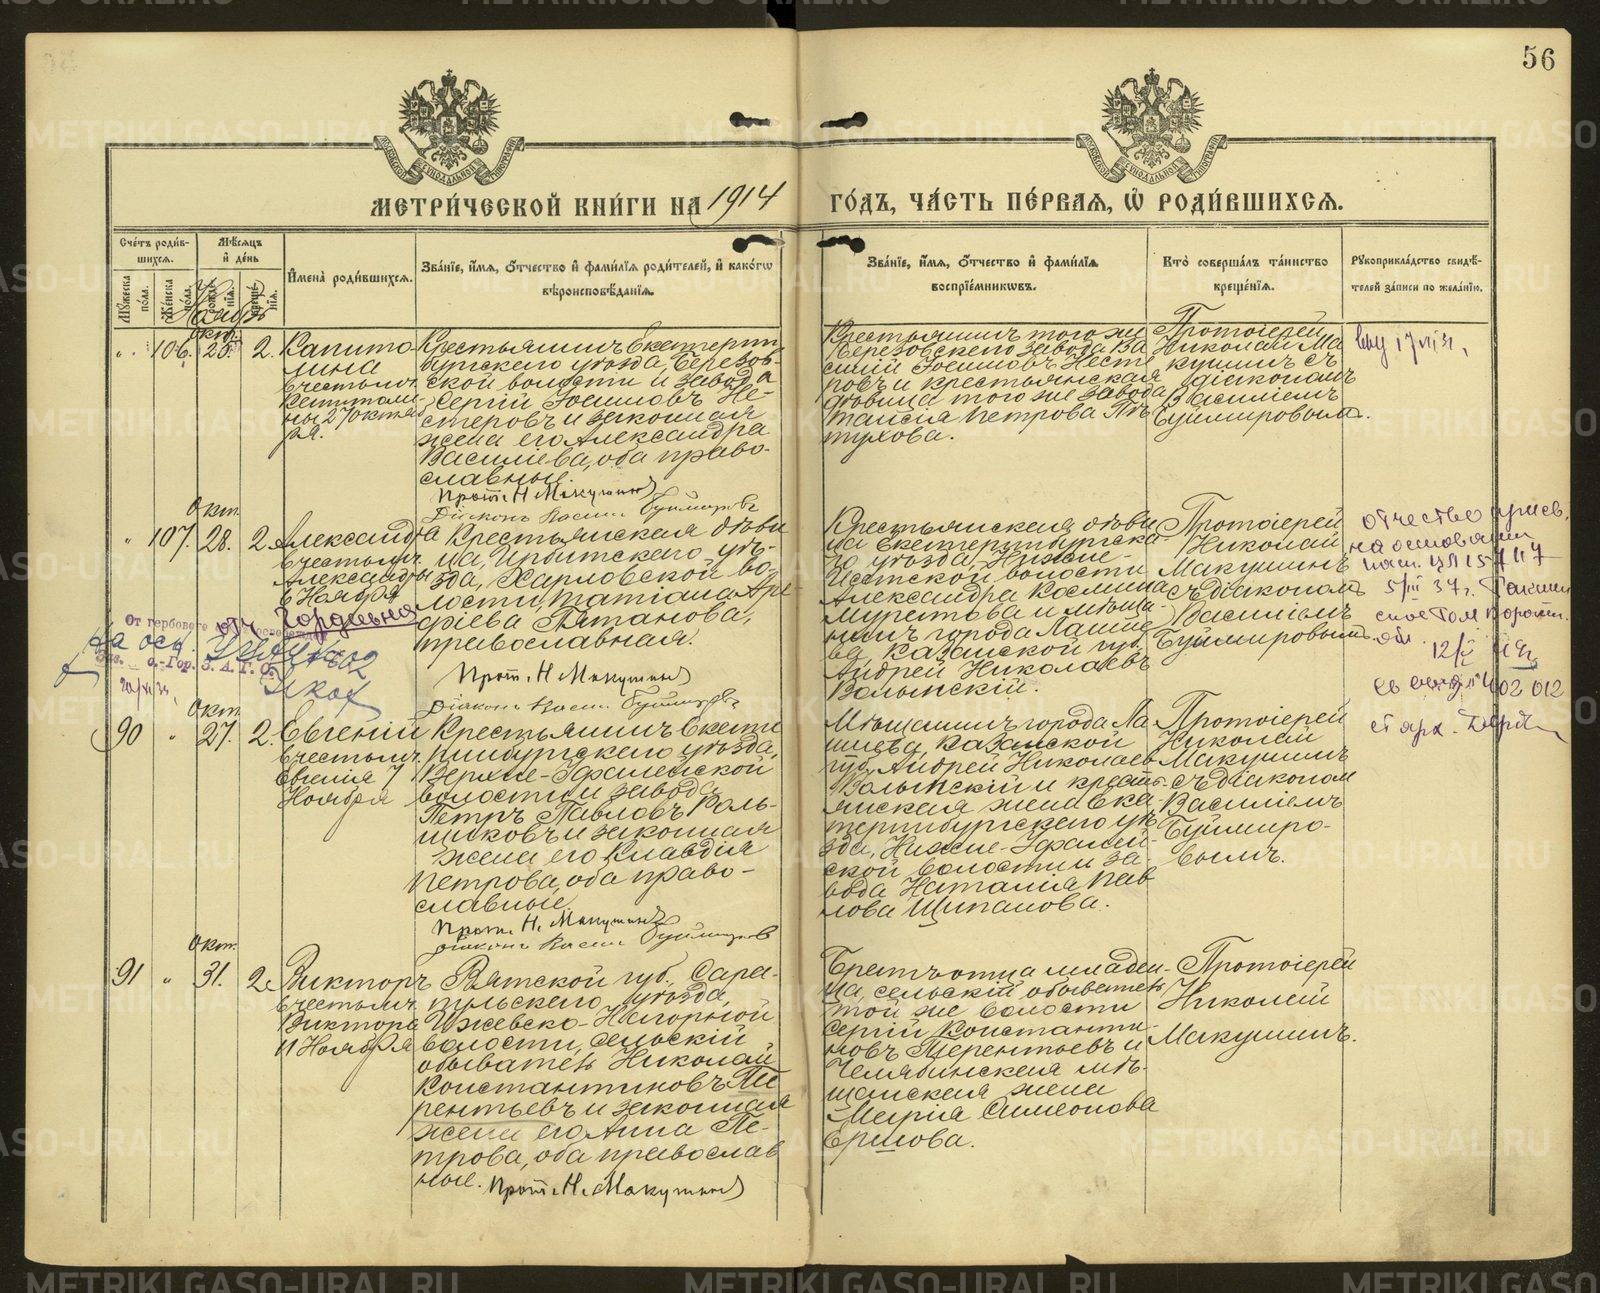 56
МЕТРИ́ЧЕСКОЙ КНИ́ГИ НА 1914 ГО́ДЪ, ЧА́СТЬ ПЕ́РВАЯ, Ѡ РОДИ́ВШИХСЯ.
Сче́тъ роди́в-
шихся.
Му́жеска по́ла.
Же́нска по́ла.
Мѣ́сяцъ
и де́нь
рожде́нїя.
креще́нїя.
Имена̀ роди́вшихся.
Зва́нїе, и́мя, о́тчество и фами́лїя роди́телей, и како́гѡ
вѣроисповѣ́данїя.
Зва́нїе, и́мя, о́тчество и фами́лїя
воспрїе́мниковъ.
Кто̀ соверша́лъ та́инство
креще́нїя.
Рукоприкла́дство свидѣ́-
телей за́писи по жела́нїю.
Ноябрь
окт.
" 106. 25. 2.
Капито-
лина
в честь муч.
Капитоли-
ны 27 октяб
ря.
Крестьянинъ Екатерин
бургскаго уѣзда, Березов-
ской волости и завода
Сергій Іосифовъ Не-
стеровъ и законная
жена его Александра
Василіева, оба право-
славные.
Прот. Н. Макушинъ
Діаконъ Васил. Буймировъ
Крестьянинъ того же
Березовскаго завода Ва
силій Іосифовъ Несте
ровъ и крестьянская
дѣвица того же завода
Таисія Петрова Пѣ
тухова.
Протоіерей
Николай Ма
кушинъ съ
діакономъ
Василіемъ
Буймировымъ.
окт.
" 107. 28. 2.
Александра
в честь муч.
Александры
6 Ноября
Крестьянская дѣви
ца, Ирбитскаго уѣ-
зда, Харловской во-
лости, Татіана Аре
фіева Пятанова,
православная.
Прот. Н. Макушинъ
Діаконъ Васил. Буймировъ
Крестьянская дѣви
ца Екатеринбургска
го уѣзда, Нижне-
Исетской волости
Александра Космина
Муратова и мѣща-
нинъ города Лаише
ва, Казанской губ.
Андрей Николаевъ
Волынскій.
Протоіерей
Николай
Макушинъ
съ діакономъ
Василіемъ
Буймировымъ
отчество присв.
на основании
5/III 37 г.
12/V
402 012
От гербового
отч. Гордеевна
окт.
90 " 27. 2.
Евгеній
в честь муч.
Евгенія 7
Ноября
Крестьянинъ Екате
ринбургскаго уѣзда,
Верхне-Уфалейской
волости и завода
Петръ Павловъ Коль-
щиковъ и законная
жена его Клавдія
Петрова, оба право-
славные.
Прот. Н. Макушинъ
діаконъ Васил. Буймировъ
Мѣщанинъ города Ла
ишева, Казанской
губ. Андрей Николаевъ
Волынскій и кресть-
янская жена Ека-
теринбургскаго уѣ
зда, Нижне-Уфалей-
ской волости и за-
вода Наталія Пав
лова Щипанова.
Протоіерей
Николай
Макушинъ
съ діакономъ
Василіемъ
Буймиро-
вымъ.
окт.
91 " 31. 2.
Викторъ
в честь муч.
Виктора
11 Ноября
Вятской губ. Сара-
пульскаго уѣзда,
Ижевско-Нагорной
волости, сельскій
обыватель Николай
Константиновъ Те
рентьевъ и законная
жена его Анна Пе-
трова, оба православ
ные.
Прот. Н. Макушинъ
Братъ отца младен-
ца, сельскій обыватель
той же волости
Сергій Константи-
новъ Терентьевъ и
Челябинская мѣ-
щанская жена
Марія Симеонова
Ершова.
Протоіерей
Николай
Макушинъ.